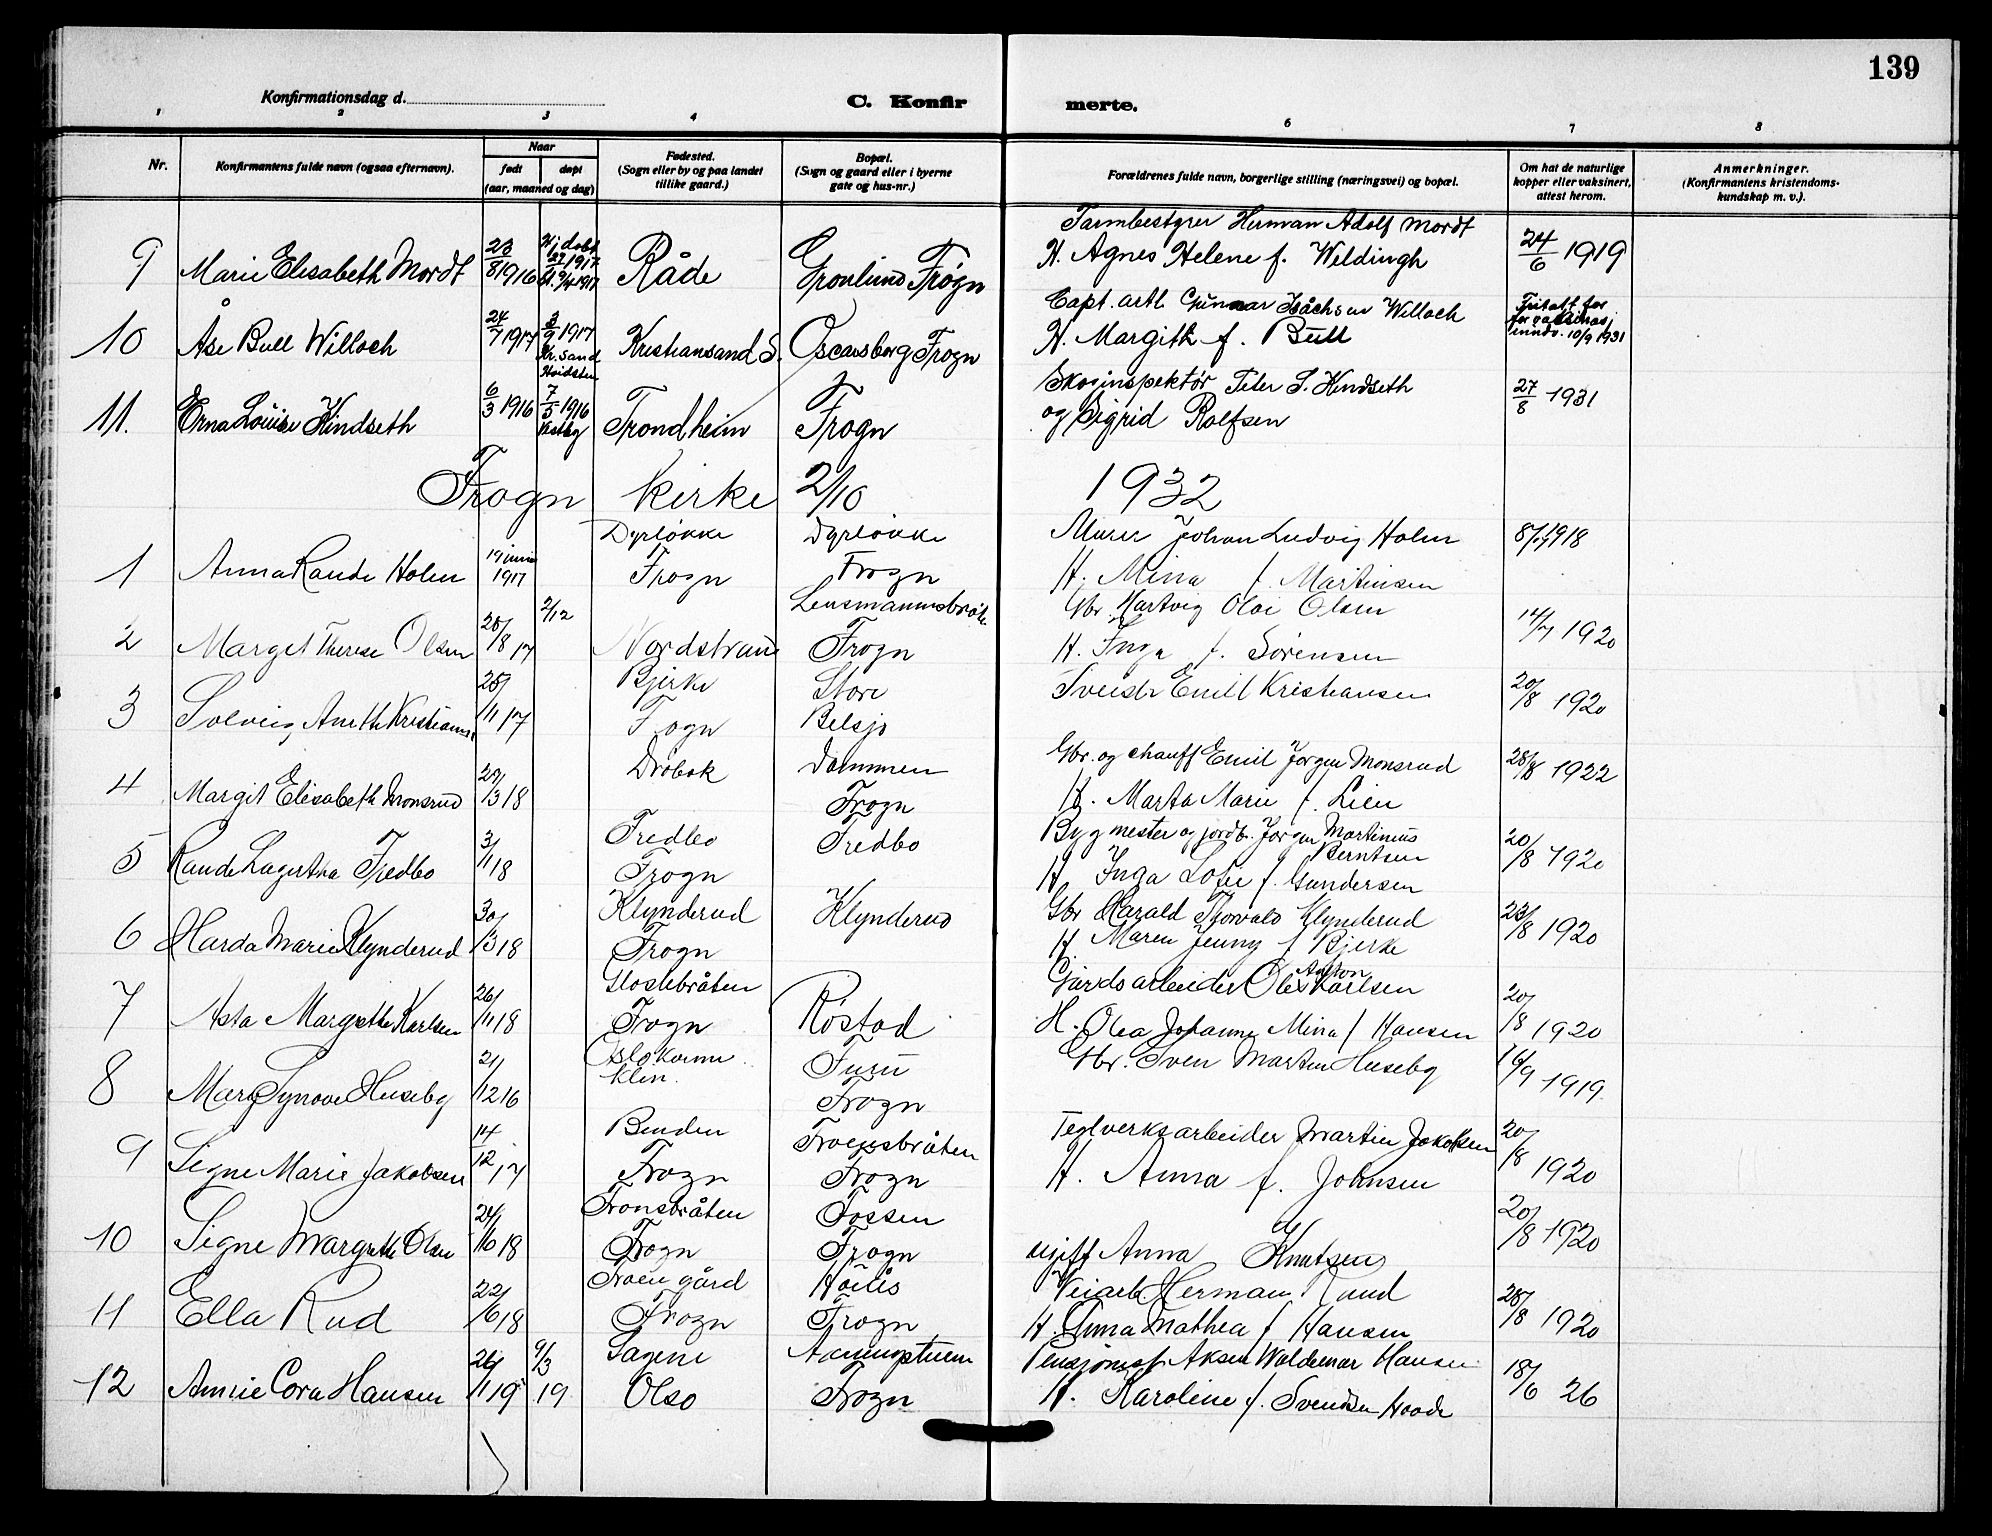 139
Konfirmationsdag d.
C. Konfir merte.
1 2 3 4 6 7 8
Nr.
Konfirmantens fulde navn (ogsaa efternavn).
Naar
født
døpt
(aar, maaned og dag)
Fødested.
(Sogn eller by og paa landet
tillike gaard.)
Bopæl.
(Sogn og gaard eller i byerne
gate og hus-nr.)
Forældrenes fulde navn, borgerlige stilling (næringsvei) og bopæl.
Om hat de naturlige
kopper eller vaksinert,
attest herom.
Anmerkninger.
(Konfirmantens kristendoms-
kundskap m. v.).
Farmbestyrer Herman Adolf Mordt
9 Marie Elisabeth Mordt 23/8 1916 Hj døbt 1917 Råde Gronlund Frogn H. Agnes Helene f. Weldingh 24/6 1919
Capt. artl. Gunnar Isachsen Willoch
10 Åse Bull Willoch 24/7 1917 3/9 1917 Kr. Sand Kristiansand S. Oscarsborg Frogn H. Margith f. Bull 10/9 1931
Skoginspektør Peter S. Kindseth
11. Erna Louise Kindseth 6/3 1916 7/5 1916 Trondheim Frogn og Sigrid Rolfsen 27/8 1931
Frogn Kirke 2/10 1932
Dyrløkke Dyrløkke Murer Johan Ludvig Holm
1 Anna Rande Holm 19 juni 1917 Frogn Frogn H. Mina f. Martinsen
2/12 Lensmannsbråte Gbr. Hartvig Olai Olsen
2 Marget Therese Olsen 20/8 17 Nordstrand Frogn H. Inga f. Sörensen 14/7 1920
Bjerke Store Svendr Emil Kristiansen
3 Solveig Kristians 25/11 17 Frogn Belsjø 20/8 1920
Dröbak Dammen Gbr. og chauff Emil Jørgen Monsrud
4 Margit Elisabeth Monsrud 29/3 18 Frogn H. Marta Marie f. Lien 28/8 1922
Tredbo Tredbo Bygmester og jordb. Jørgen Martinius Berntsen
5 Rande Lagertha Tredbo 3/1 18 Frogn H Inga Lofie f. Gundersen 20/8 1920
Klynderud Klynderud Gbr Harald Thorvald Klynderud
6 Harda Marie Klynderud 30/3 18 Frogn H Maren Jenny f Bjerke 23/8 1920
Glostebråten Gårdsarbeider Ole Anton Karlsen
7 Asta Margrethe Karlsen 26/11 18 Frogn Röstad H. Olea Johanne Mina f Hansen 20/8 1920
Oslo kvinne klin. Furu Gbr. Sven Martin Huseby
8 Mary Synove Huseby 21/12 16 Frogn 16/9 1919
Benden Froensbråten Teglverksarbeider Martin Jakobsen
9 Signe Marie Jakobsen 14/12 17 Frogn Frogn H. Anna f. Johnsen 20/8 1920
Fronsbråten Fossen
10 Signe Margrethe Olsen 24/10 18 Frogn Frogn ugift Anna Knutsen 20/8 1920
Froen gård Höiås Veiarb. Herman Rund
11 Ella Rud 22/6 18 Frogn Frogn H. Anna Mathea f Hansen 28/8 1920
Sagene Pensjonist Aksen Waldemar Hansen
12 Annie Cora Hansen 26/1 19 9/3 19 Olso Frogn H. Karoline f. Svendsen Haade 18/6 26